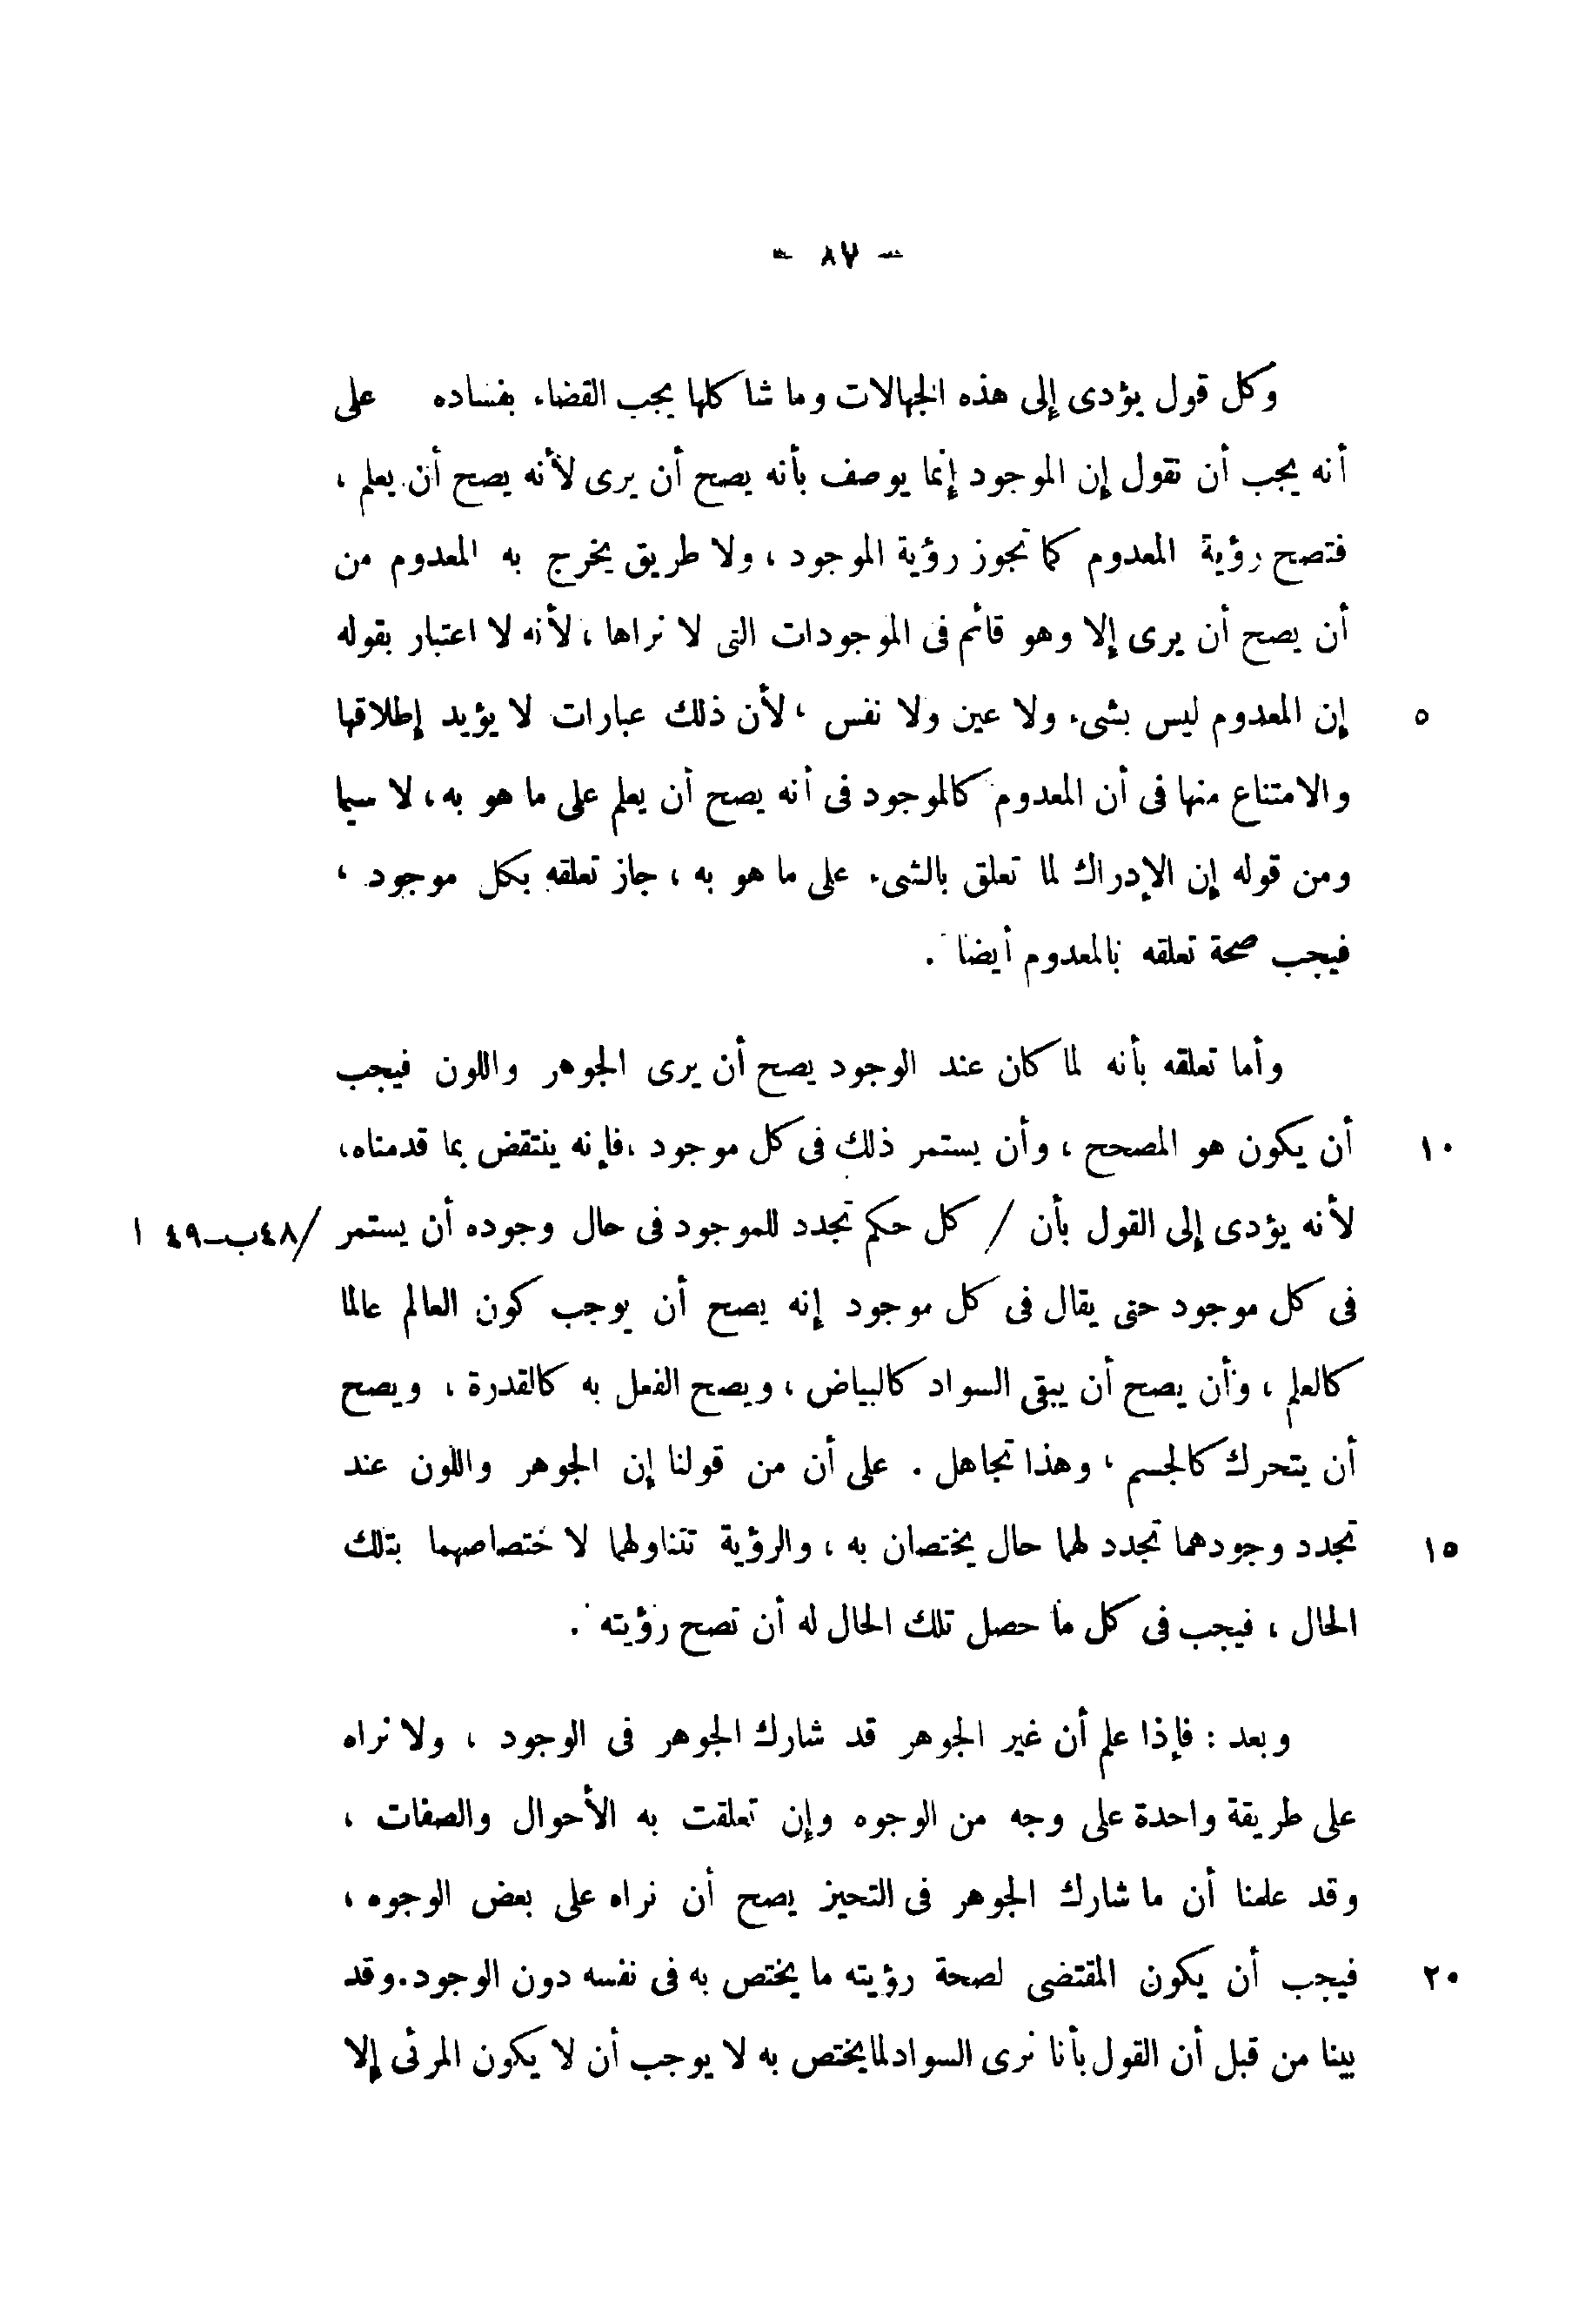 - ٨٧ -
وكل قول يؤدى إلى هذه الجهالات وما شاكلها يجب القضاء بفساده على
أنه يجب أن نقول إن الموجود إنما يوصف بأنه يصح أن يرى لأنه يصح أن يعلم ،
فتصح رؤية المعدوم كما تجوز رؤية الموجود ، ولا طريق يخرج به المعدوم من
أن يصح أن يرى إلا وهو قائم فى الموجودات التى لا نراها ، لأنه لا اعتبار بقوله
٥ إن المعدوم ليس بشىء ولا عين ولا نفس ، لأن ذلك عبارات لا يؤيد إطلاقها
والامتناع منها فى أن المعدوم كالموجود فى أنه يصح أن يعلم على ما هو به ، لا سيما
ومن قوله إن الإدراك لما تعلق بالشىء على ما هو به ، جاز تعلقه بكل موجود ،
فيجب صحة تعلقه بالمعدوم أيضا .
وأما تعلقه بأنه لما كان عند الوجود يصح أن يرى الجوهر واللون فيجب
١٠ أن يكون هو المصحح ، وأن يستمر ذلك فى كل موجود ، فإنه ينتقض بما قدمناه ،
لأنه يؤدى إلى القول بأن / كل حكم تجدد للموجود فى حال وجوده أن يستمر /٤٨ب-٤٩ ا
فى كل موجود حتى يقال فى كل موجود إنه يصح أن يوجب كون العالم عالما
كالعلم ، وأن يصح أن يبقى السواد كالبياض ، ويصح الفعل به كالقدرة ، ويصح
أن يتحرك كالجسم ، وهذا تجاهل . على أن من قولنا إن الجوهر واللون عند
١٥ تجدد وجودهما تجدد لهما حال يختصان به ، والرؤية تتناولهما لاختصاصهما بتلك
الحال ، فيجب فى كل ما حصل تلك الحال له أن تصح رؤيته .
وبعد : فإذا علم أن غير الجوهر قد شارك الجوهر فى الوجود ، ولا نراه
على طريقة واحدة على وجه من الوجوه وإن تعلقت به الأحوال والصفات ،
وقد علمنا أن ما شارك الجوهر فى التحيز يصح أن نراه على بعض الوجوه ،
٢٠ فيجب أن يكون المقتضى لصحة رؤيته ما يختص به فى نفسه دون الوجود . وقد
بينا من قبل أن القول بأنا نرى السواد لما يختص به لا يوجب أن لا يكون المرئى إلا